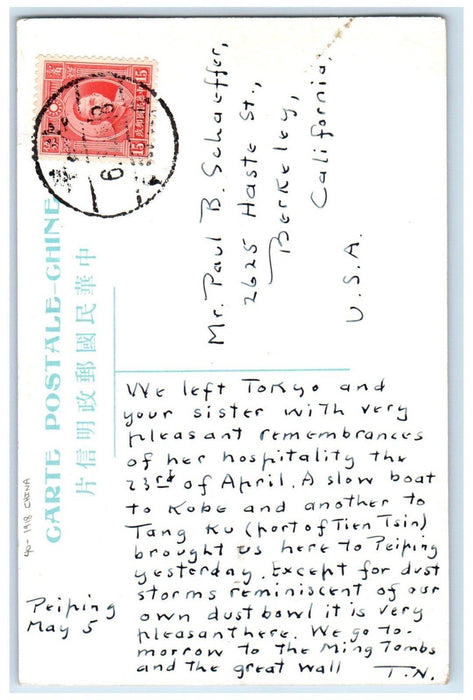 CARTE POSTALE-CHINE
中華民國郵政明信片
15
15
Mr. Paul B. Schaeffer,
2625 Haste St.,
Berkeley,
California,
U.S.A.
We left Tokyo and
your sister with very
pleasant remembrances
of her hospitality the
23rd of April. A slow boat
to Kobe and another to
Tang Ku (port of Tien Tsin)
brought us here to Peiping
yesterday. Except for dust
storms reminiscent of our
own dust bowl it is very
pleasant here. We go to-
morrow to the Ming Tombs
and the great wall
T.N.
Peiping
May 5
40- 1918 CHINA